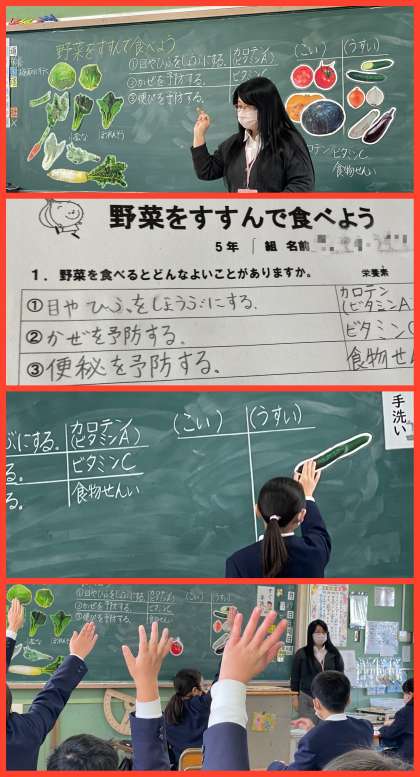 野菜をすすんで食べよう
①目やひふをじょうぶにする。 カロテン(ビタミンA)
②かぜを予防する。 ビタミンC
③便ぴを予防する。
(こい) (うすい)
ビタミンC
食物せんい
野菜をすすんで食べよう
5年 組 名前
1. 野菜を食べるとどんなよいことがありますか。 栄養素
①目やひふをじょうぶにする。 カロテン(ビタミンA
②かぜを予防する。 ビタミンC
③便秘を予防する。 食物せん
ぶにする。 カロテン(ビタミンA)
る。 ビタミンC
る。 食物せんい
(こい) (うすい)
手洗い
①目やひふをじょうぶにする。
②かぜを予防する。 ビタミンC
③便ぴを予防する。
(こい) (うすい)